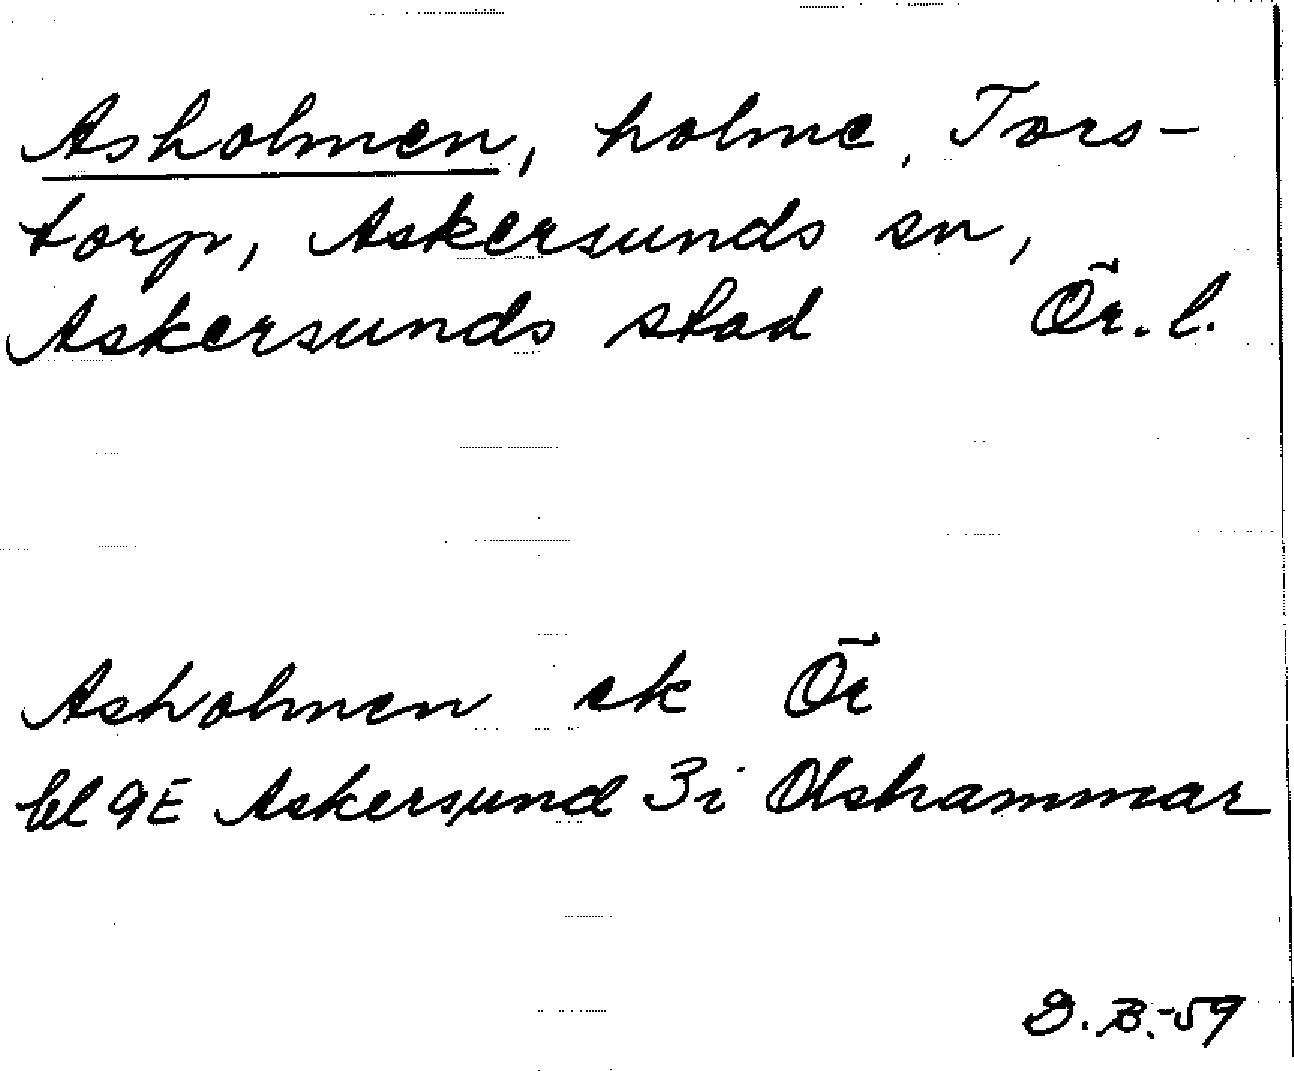 Asholmen, holme, Tors-
torp, Askersunds sn,
Askersunds stad Ör. l.
Asholmen ek Ör
bl 9E Askersund 3i Olshammar
D.B.-59